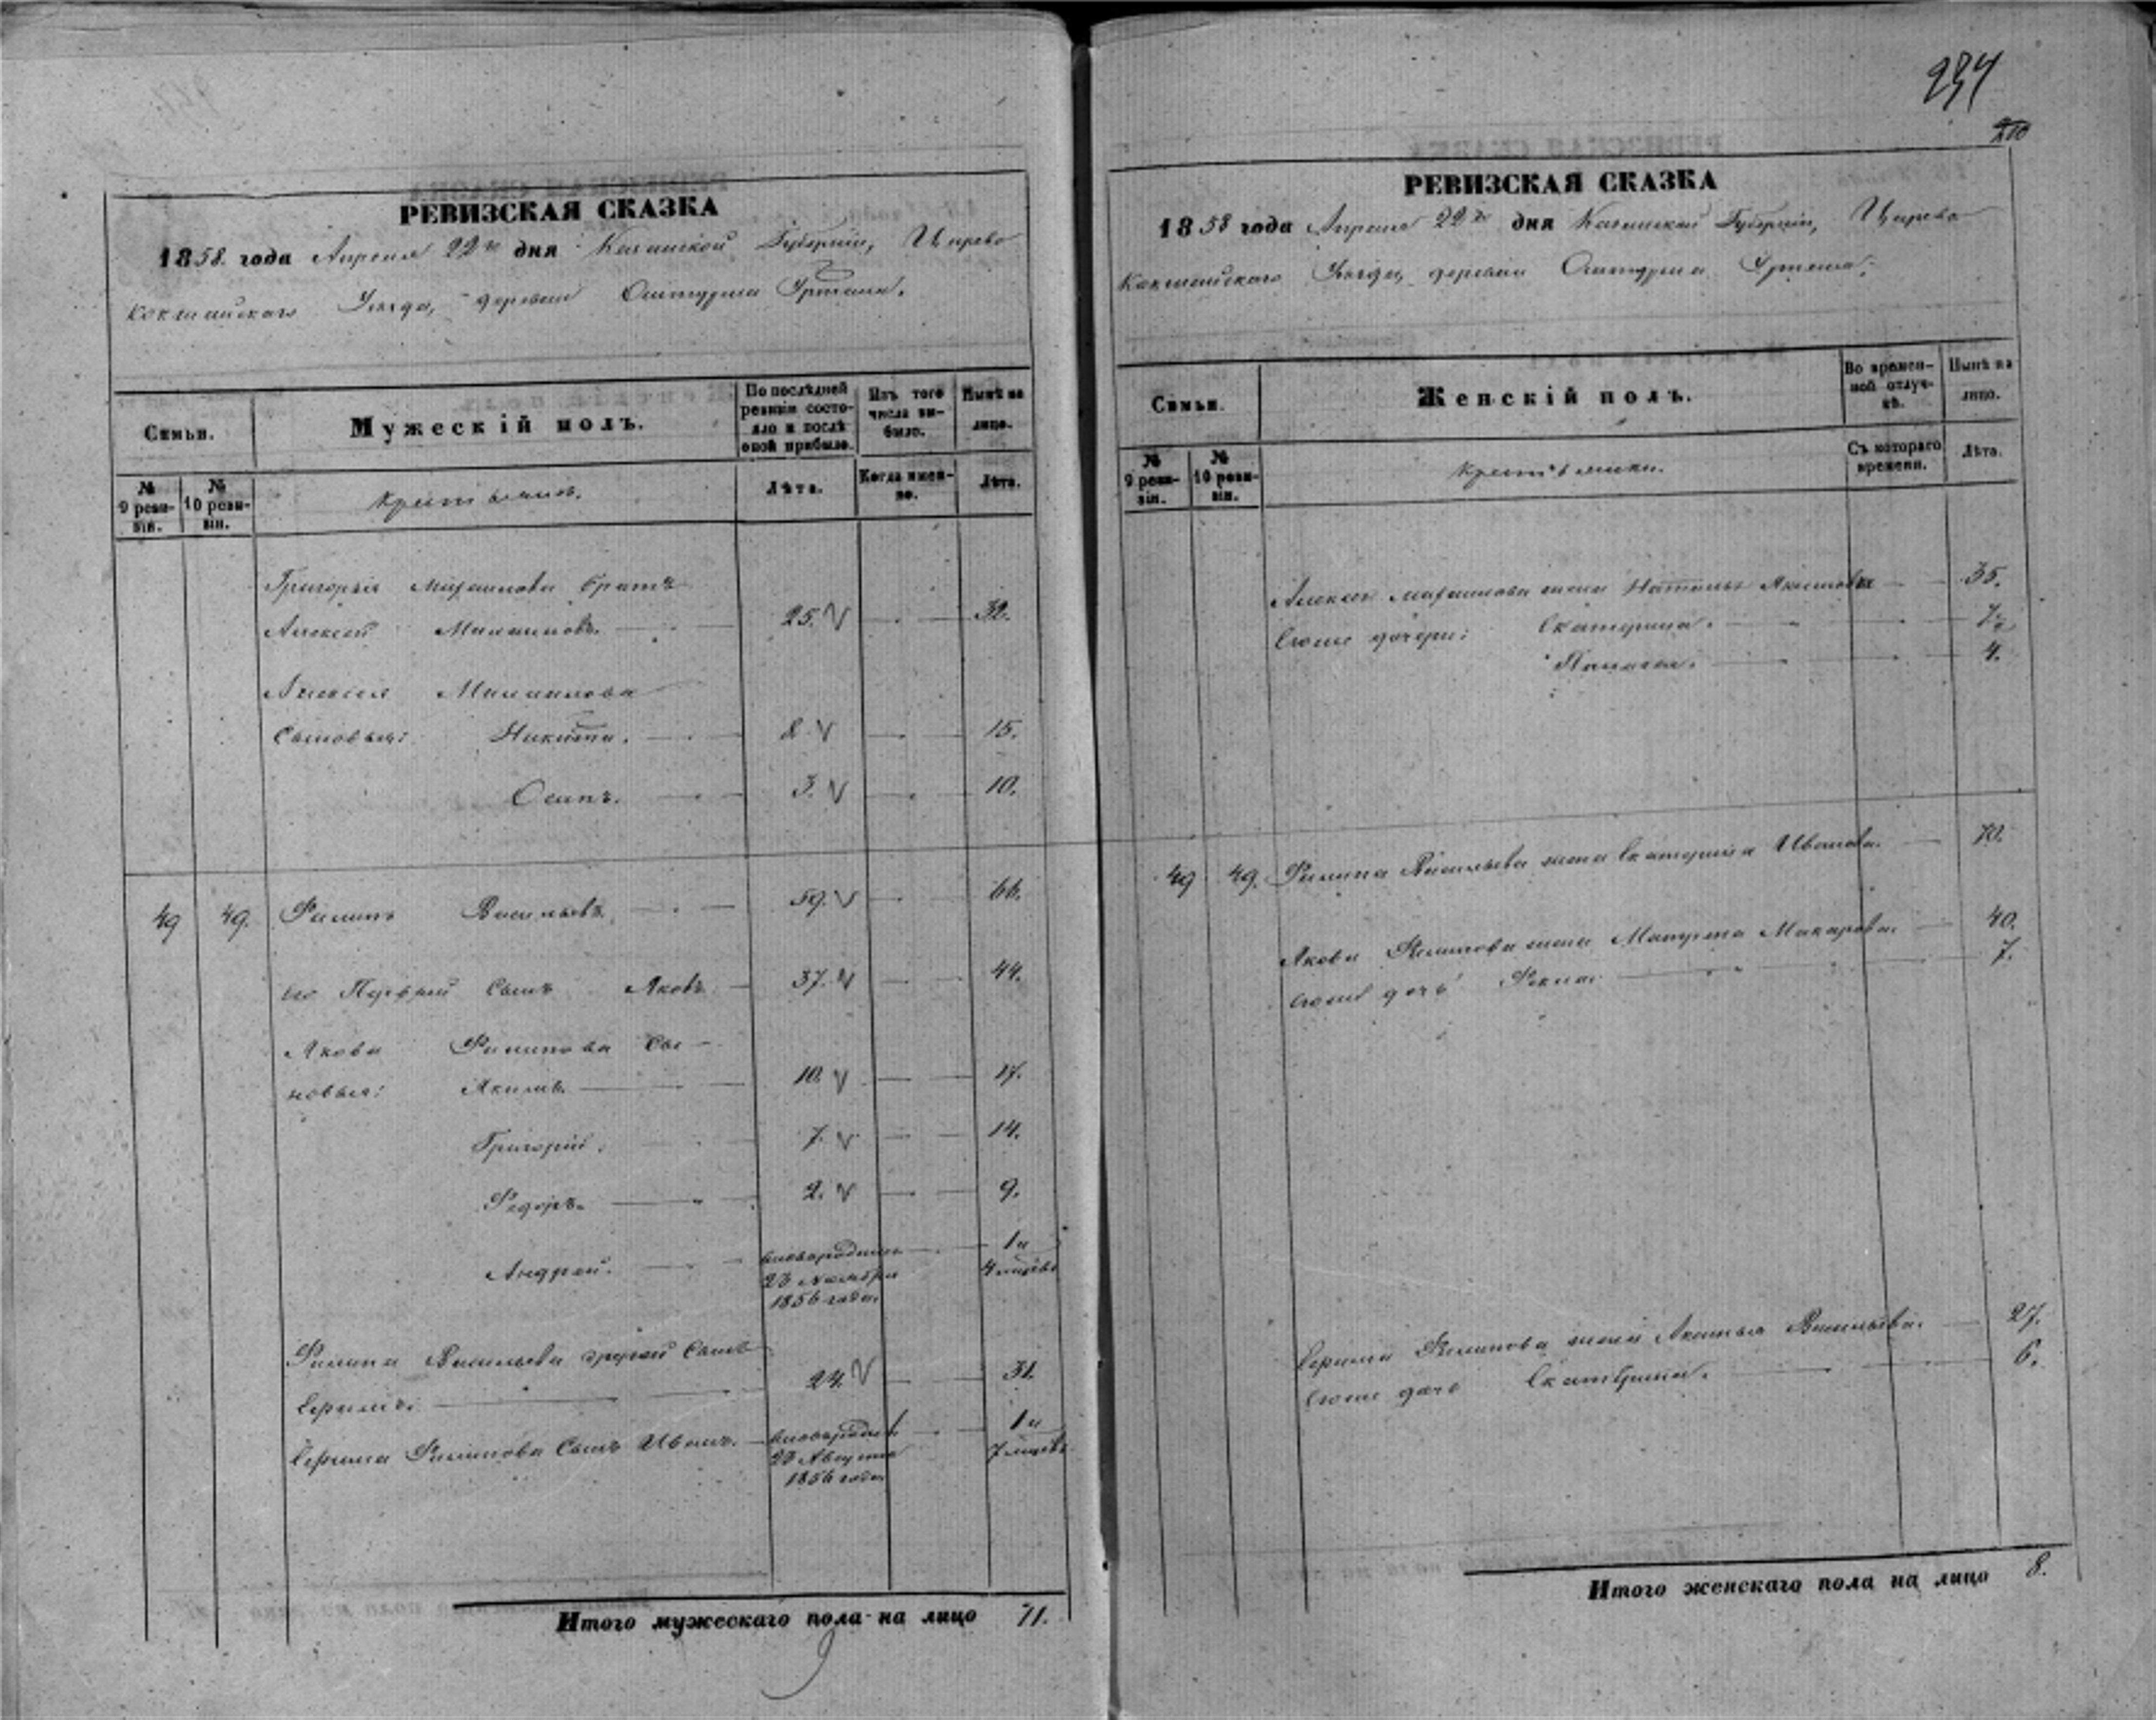 234
210
РЕВИЗСКАЯ СКАЗКА
1858 года Апреля 22го дня Казанской Губерніи, Царево
кокшайскаго Уѣзда, деревни
Семьи.
Мужескій полъ.
По послѣдней ревизіи состояло и послѣ оной прибыло.
Изъ того числа выбыло.
Нынѣ на лицо.
№ 9 ревизіи.
№ 10 ревизіи.
Крестьяне.
Лѣта.
Когда именно.
Лѣта.
Григорья братъ
Алексей 25. 32.
Алексея
Сыновья: Никита. 8 15.
Осипъ. 3. 10.
49 49. Филипъ Васильевъ. 59. 66.
Его Первый Сынъ Яковъ 37. 44.
Якова Филипова Сы-
новья: Акимъ 10. 17.
Григорій. 7. 14.
Федоръ. 2. 9.
Андрей. вновьрожденъ 23 Ноября 1856 года. 1 и 4 месяцъ
Филипа Васильева другой Сынъ
24. 31.
Филипова Сынъ Иванъ. вновьрожденъ 23 Августа 1856 года 1 и 7 месяцъ
Итого мужескаго пола на лицо 11.
РЕВИЗСКАЯ СКАЗКА
1858 года Апреля 22го дня Казанской Губерніи, Царево
Кокшайскаго Уѣзда, деревни
Семьи.
Женскій полъ.
Во временной отлучкѣ.
Нынѣ на лицо.
№ 9 ревизіи.
№ 10 ревизіи.
Крестьянки.
Съ котораго времени.
Лѣта.
Алексея жена Наталья 35.
Егоже дочери: Екатерина.
4.
49 49. Филипа Васильева жена Екатерина Иванова. 70.
Якова Филипова жена Матрена Макарова. 40.
Егоже дочь Фекла 7.
Филипова жена Васильева. 27.
Егоже дочь Екатерина. 6.
Итого женскаго пола на лицо 8.